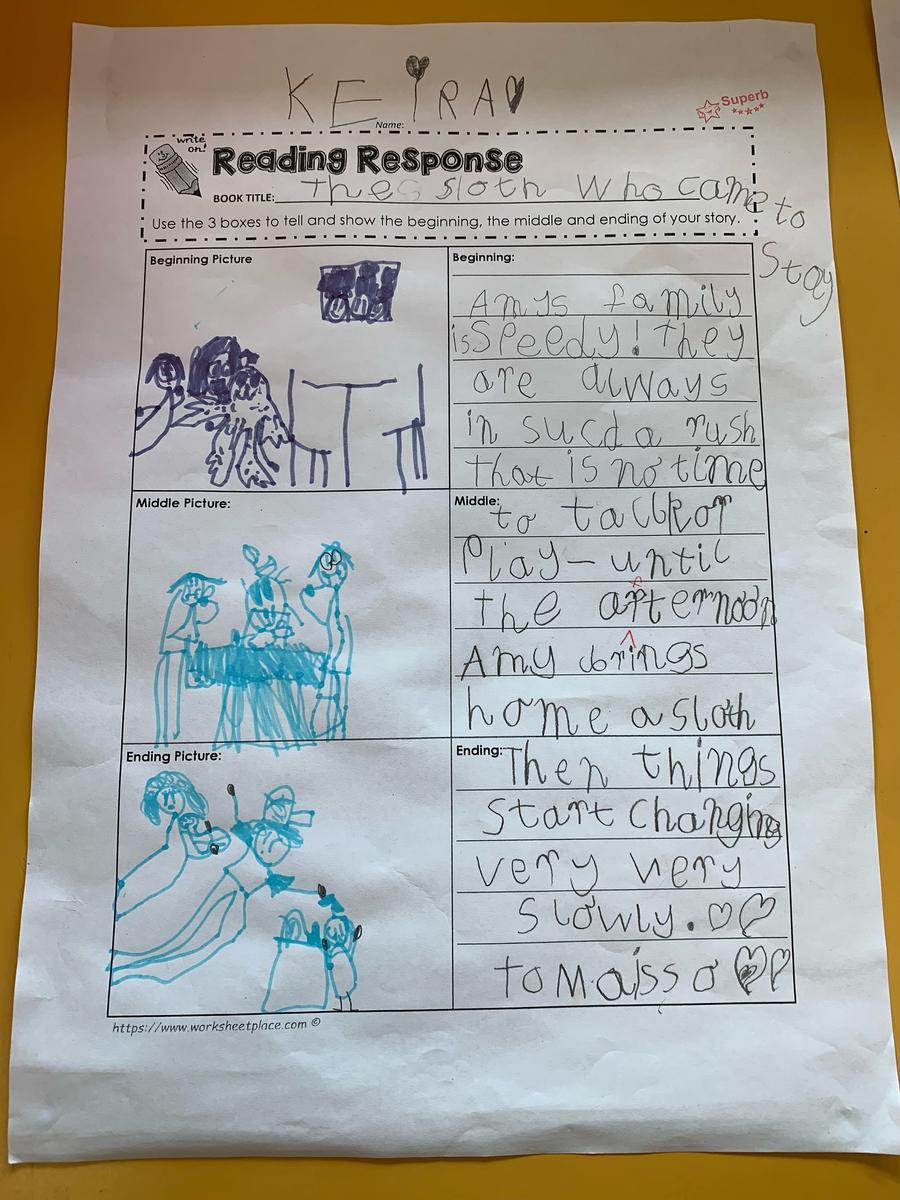 KEIRA
Superb
Name:
write on!
Reading Response
BOOK TITLE: the sloth who came to
stay
Use the 3 boxes to tell and show the beginning, the middle and ending of your story.
Beginning Picture
Beginning:
Amys family
is speedy! they
are always
in sucd a rush
that is no time
Middle Picture:
Middle:
to talk or
Play- until
the afternoon
Amy brings
home a sloth
Ending Picture:
Ending:
Then things
start changing
very very
slowly.
https://www.worksheetplace.com ©